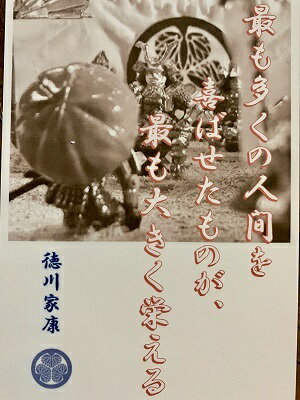 最も多くの人间を
喜ばせたものが、
最も大きく栄える
徳川家康